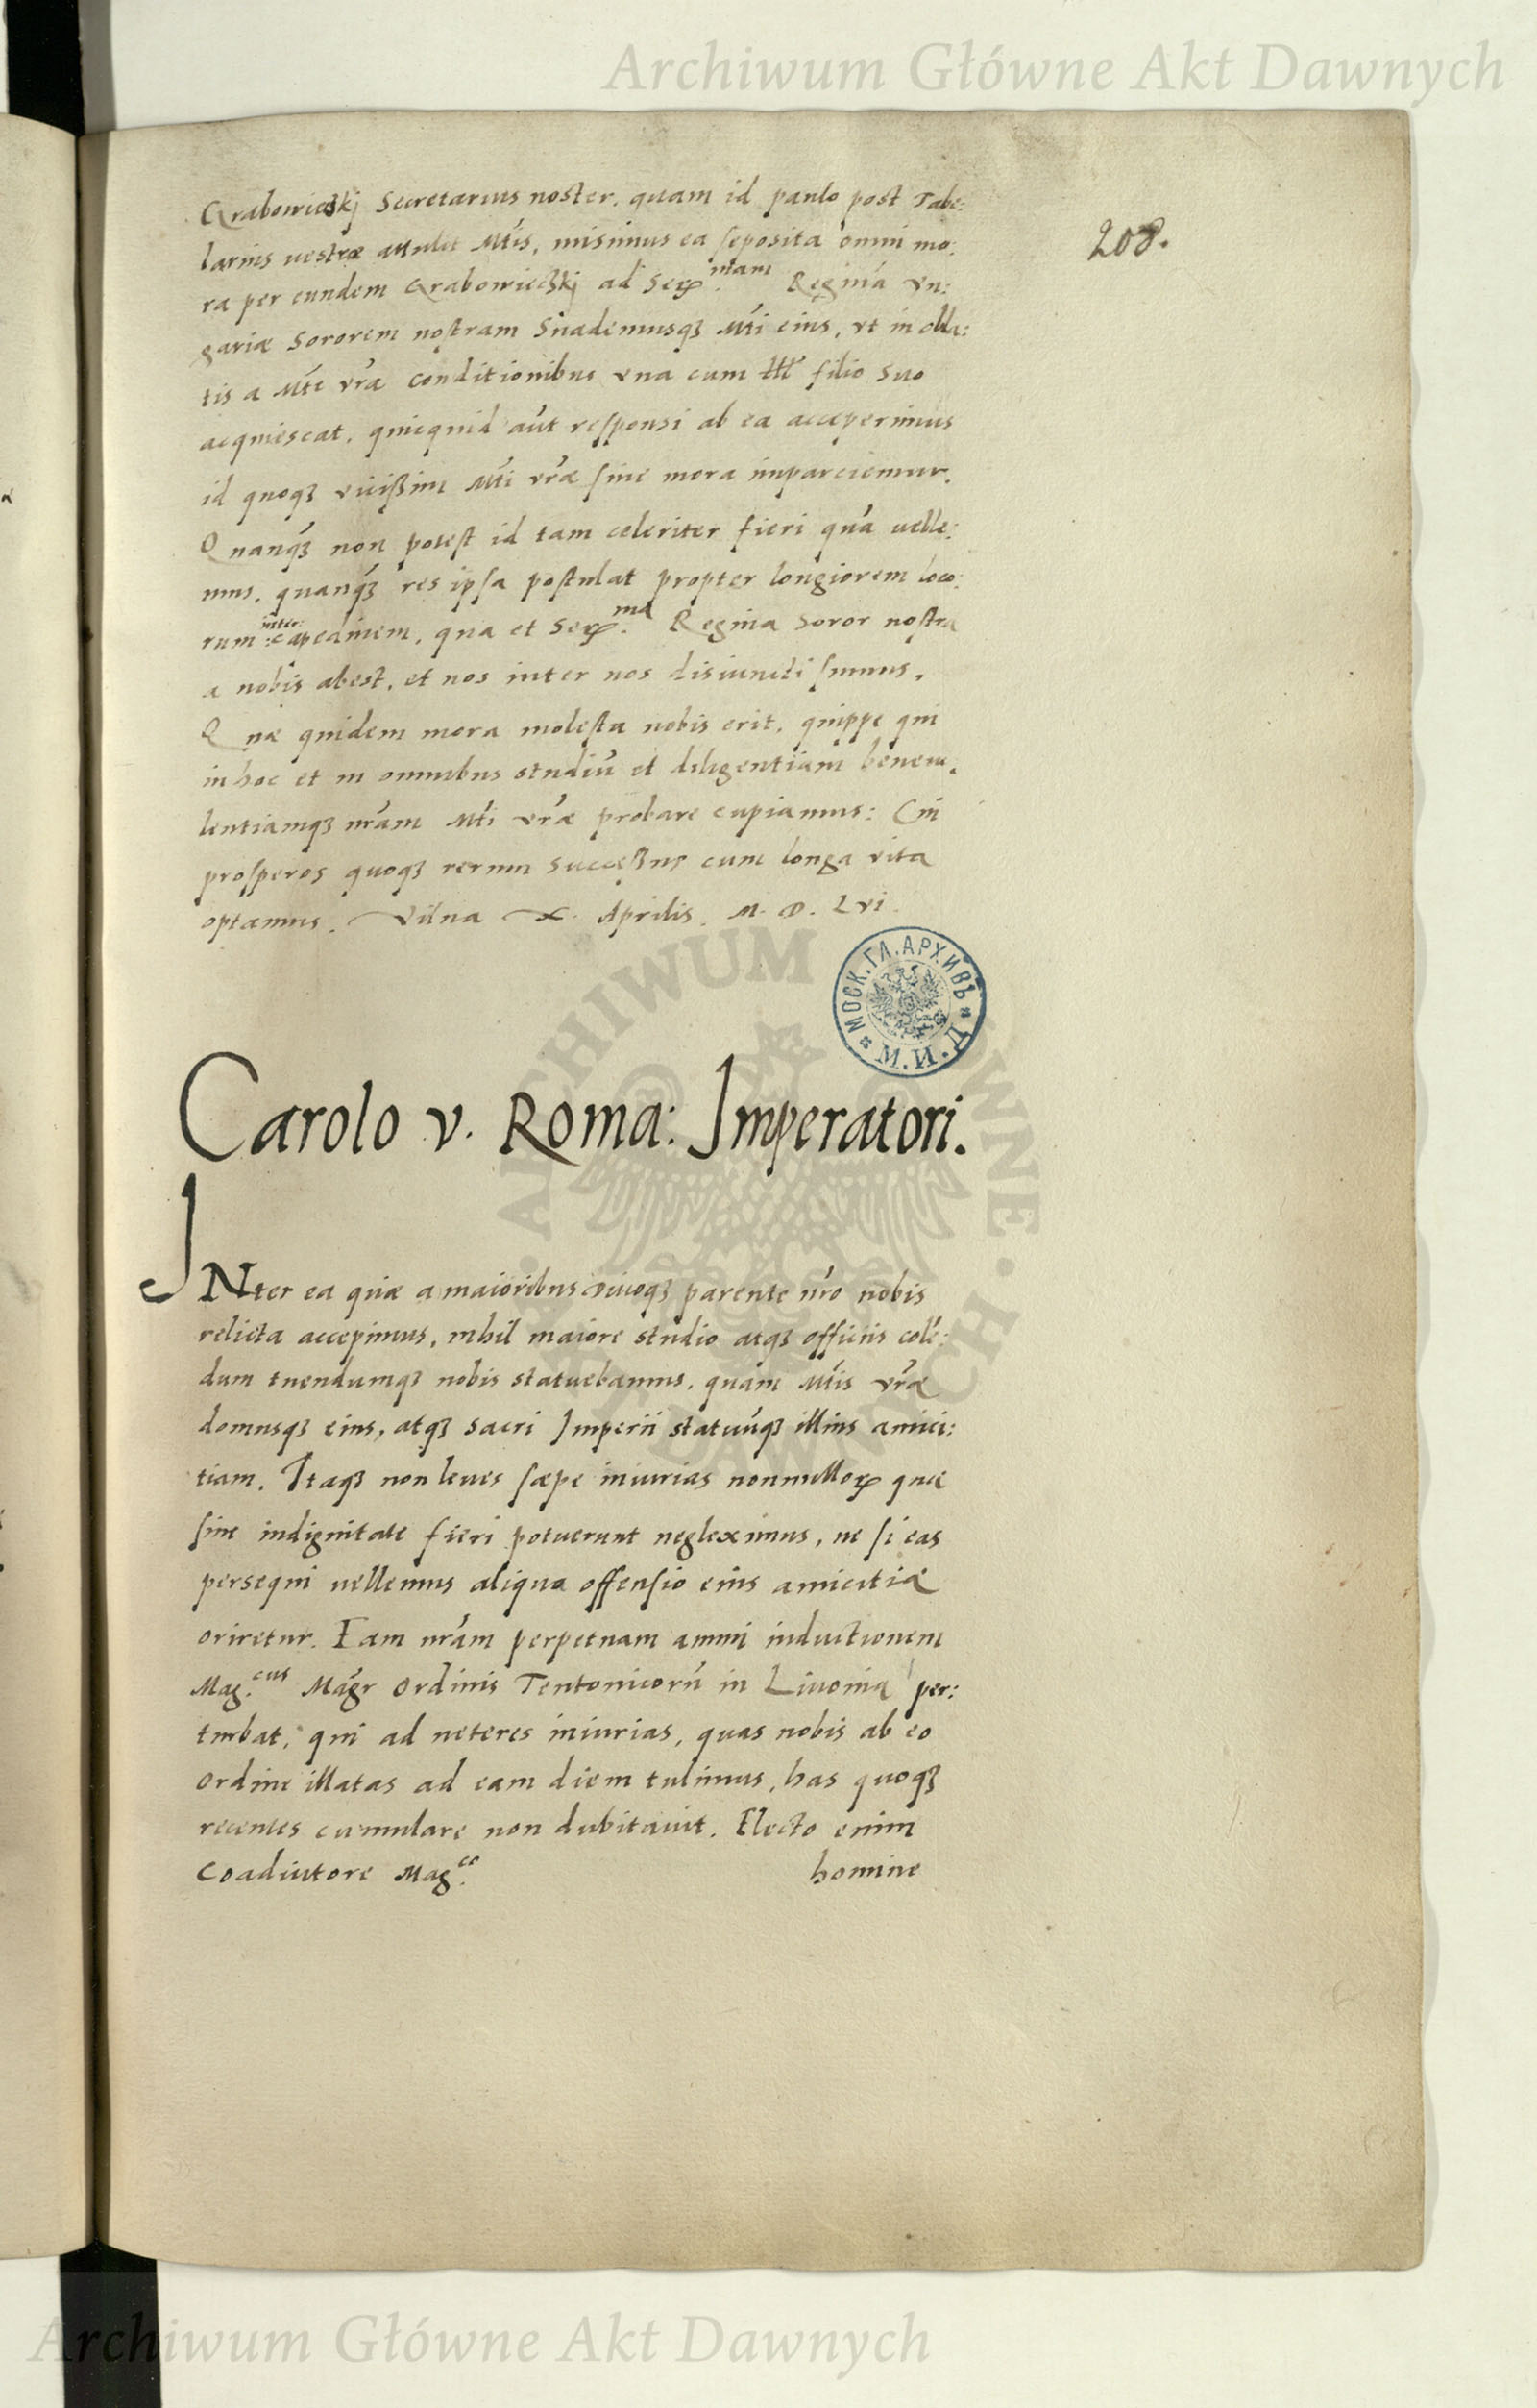 Archiwum Główne Akt Dawnych
208.
Grabowieczkj Secretarius noster, quam id paulo post Tabe:
larius uestræ attulit Mtis, misimus ea seposita omni mo:
ra per eundem Grabowieczkj ad Ser.mam Reginā Vn:
gariæ Sororem nostram Suademusqꝫ Mti eius, vt in obla:
tis a Mte vrā conditionibus vna cum Ill filio suo
acquiescat, quicquid aūt responsi ab ea acceperimus
id quoqꝫ vicißim Mti vræ sine mora imparciemur.
Quanqꝫ non potest id tam celeriter fieri quā uelle:
mus, quanqꝫ res ipsa postulat propter longiorem loco:
rum inter:capedinem, qua et Ser.ma Regina soror nostra
a nobis abest, et nos inter nos disiuncti sumus.
Quæ quidem mora molesta nobis erit, quippe qui
in hoc et in omnibus studiū et diligentiam beneuo
lentiamqꝫ nrām Mti vræ probare cupiamus: Cui
prosperos quoqꝫ rerum succeßus cum longa vita
optamus. Vilna X. Aprilis. M. D. Lvi.
МОСК. ГЛ. АРХИВЪ М. И. Д.
Carolo v. Roma: Imperatori.
INter ea quæ a maioribus Diuoqꝫ parente nr̄o nobis
relicta accepimus, nihil maiore studio atqꝫ officiis colē:
dum tuendumqꝫ nobis statuebamus, quam Mtis vræ
domusqꝫ eius, atqꝫ sacri Imperii statuūqꝫ illius amici:
tiam. Itaqꝫ non leues sæpe iniurias nonnulloꝝ quæ
sine indignitate fieri potuerunt negleximus, ne si eas
persequi uellemus aliqua offensio eius amicitiæ
oriretur. Eam nrām perpetuam animi inductionem
Mag.cus Magr Ordinis Teutonicorū in Liuonia per:
turbat, qui ad ueteres iniurias, quas nobis ab eo
Ordine illatas ad eam diem tulimus, has quoqꝫ
recentes cumulare non dubitauit. Electo enim
Coadiutore Mag.co homine
Archiwum Główne Akt Dawnych